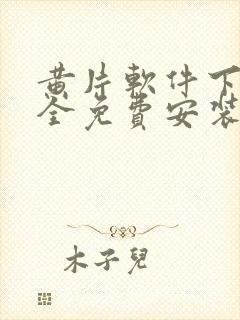 黄片軟件下
全免費安裝
木子兒